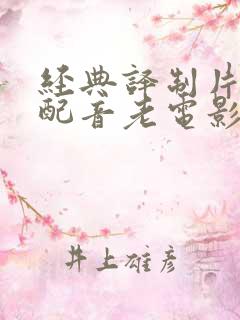 經典譯制片
配音老電影
井上雄彦